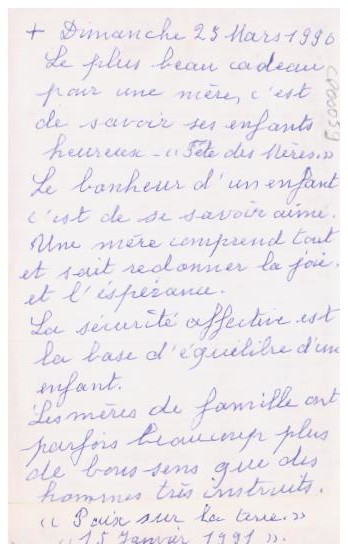 + Dimanche 25 Mars 1990
Le plus beau cadeau
pour une mère, c'est
de savoir ses enfants
heureux - « Fête des Mères. »
Le bonheur d'un enfant
c'est de se savoir aimé.
Une mère comprend tout
et sait redonner la joie.
et l'éspérance.
La sécurité affective est
la base d'équilibre d'un
enfant.
Les mères de famille ont
parfois beaucoup plus
de bons sens que des
hommes très instruits.
« Paix sur la terre. »
« 15 Janvier 1991 ».